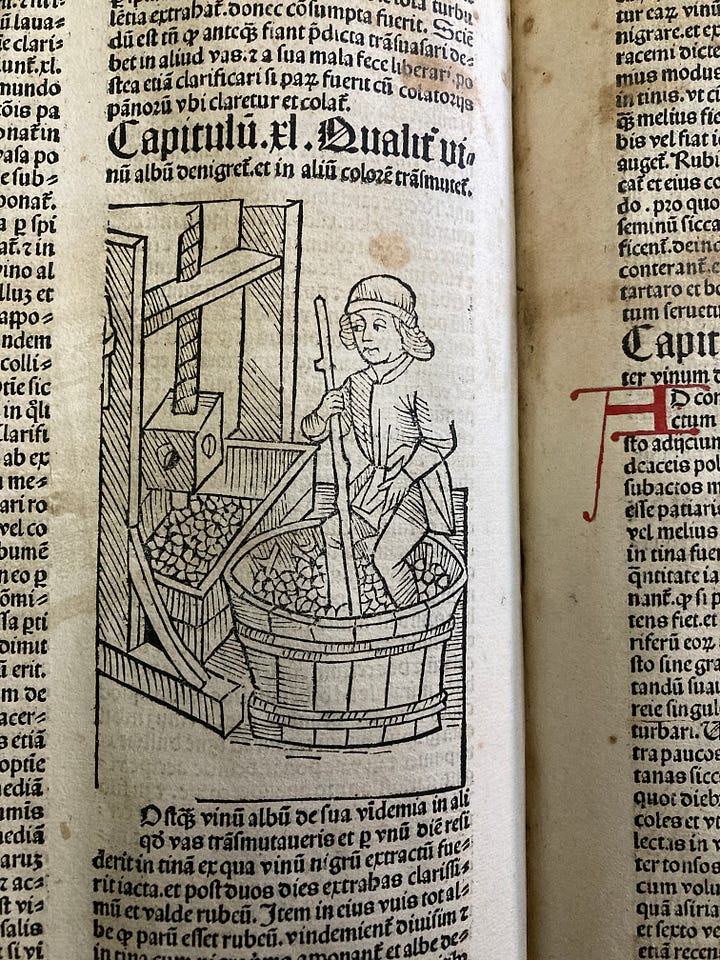 lauua=
e clari=
unt.xl.
mundo
tōis pa
onat̄ in
vasa po
e sub=
ponat̄.
a ꝑ spi
at̄.⁊ in
vino al
lluꝫ et
appo=
indem
colli=
ptie sic
in q̄li
Clarifi
ab ex
u me=
ari ro
vel co
bumē
neo ꝑ
ōmi=
ssa ꝑti
dimit
ū erit.
m de
acer=
s etiā
optie
nediā
umis
nediā
aruꝫ
⁊ ac=
st vi=
salis
t si vi
tota turbu
lētia extrahat̄.donec cōsumpta fuerit. Sciē
dū est tn̄ ꝙ anteq̄ꝫ fiant p̄dicta trāsuasari de=
bet in aliud vas.⁊ a sua mala fece liberari.po
stea etiā clarificari si paꝝ fuerit cū colatorijs
pānorū vbi claretur et colat̄.
Capitulū.xl.Qualit̄ vi=
nū albū denigret̄.et in aliū colorē trāsmutet̄.
Ostq̄ꝫ vinū albū de sua vīdemia in ali
qd̄ vas trāsmutaueris et ꝑ vnū diē resi
derit in tinā ex qua vinū nigrū extractū fue=
rit iacta.et post duos dies extrahas clarissi=
mū et valde rubeū. Item in eius vuis tot al=
be ꝙ parū esset rubeū.vindemient̄ diuisim ⁊
tur eaꝝ vinū
nigrare.et ex
racemi dicte
mus modus
in tinis.vt ci
q̄ꝫ melius fie
bis vel fiat i
auget̄. Rubi
cat̄ et eius co
do . pro quo
seminū sicca
ficent̄.deinde
conterant̄.e
tartaro et bo
tum seruetur
Capit
ter vinum d
AD con
ctum
sto adijcium
deaceis pol
subactos m
esse patiaris
vel melius
in tina fuer
q̄ntitate ia
nant̄.ꝙ si p
tens fiet.et
riferū eoꝝ
sto sine gra
tandū suau
reie singul
turbari.
tra paucos
tanas sicc
quot dieb
coles et vt
lectas in v
ter tonsos
cum volu
quā asiria
et sexto ve
etiā recen